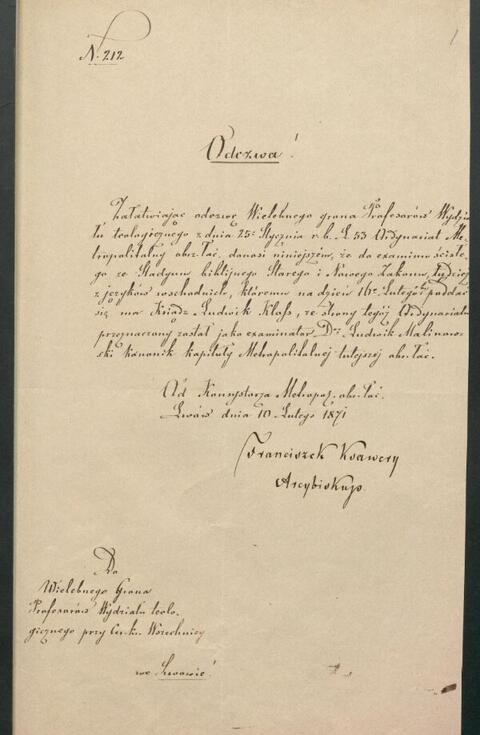 1
N. 212
Odezwa!
Załatwiając odezwę Wielebnego grona Profesorów Wydzia
łu teologicznego z dnia 25. Stycznia r. b. L. 53 Ordynariat Me-
tropolitalny obrz. łać. donosi niniejszem, że do examinu ściste-
go ze Studyum biblijnego Starego i Nowego Zakonu, tudzież
z języków wschodnich, któremu na dzień 16go Lutego poddać
się ma Ksiądz Ludwik Kloss, ze strony tegoż Ordynariatu
przeznaczony został jako examinator Dr. Ludwik Malinow-
ski kanonik kapituły Metropolitalnej tutejszej obr. łać.
Od Konsystorza Metropol. obr. łać.
Lwów dnia 10 Lutego 1871
Franciszek Ksawery
Arcybiskup
Do
Wielebnego Grona
Profesorów Wydziału teolo-
gicznego przy Ces. kr. Wszechnicy
we Lwowie!